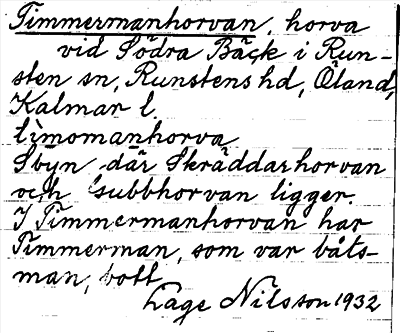 Timmermanhorvan, horva
vid Södra Bäck i Run-
sten sn, Runstens hd, Öland,
Kalmar l.
timomanhorva
Sbyn där Skräddarhorvan
och Gubbhorvan ligger.
I Timmermanhorvan har
Timmerman, som var båts-
man, bott
Lage Nilsson 1932